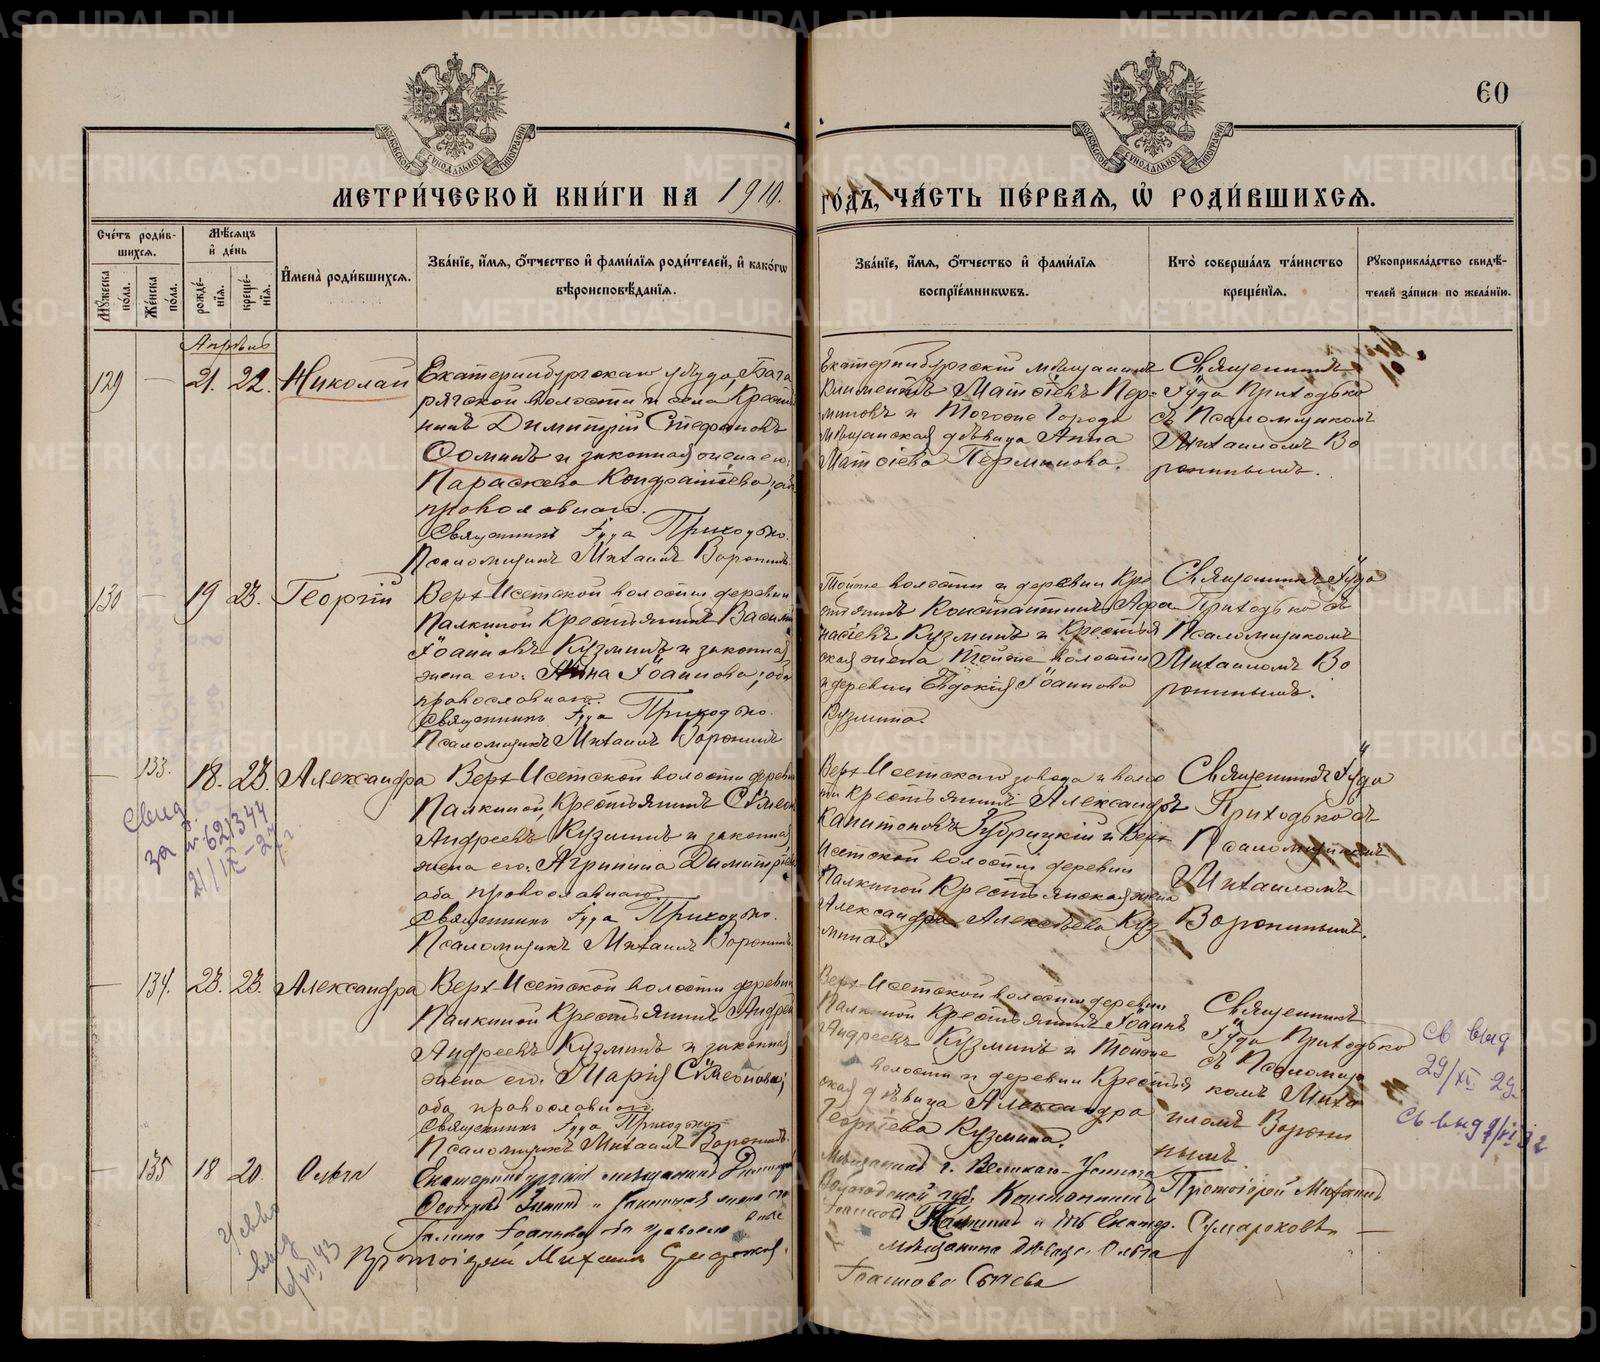 60
МЕТРИ́ЧЕСКОЙ КНИ́ГИ НА 1910. ГО́ДЪ, ЧА́СТЬ ПЕ́РВАЯ, Ѡ҆ РОДИ́ВШИХСЯ.
Сче́тъ роди́в-
шихся.
Мꙋ́жеска по́ла.
Же́нска по́ла.
Мѣ́сяцъ и҆ де́нь
рожде́нїя.
креще́нїя.
И҆мена̀ роди́вшихся.
Зва́нїе, и҆́мя, ѻ҆́тчество и҆ фами́лїя роди́телей, и҆ како́гѡ
вѣроисповѣ́данїя.
Зва́нїе, и҆́мя, ѻ҆́тчество и҆ фами́лїя
воспрїе́мникѡвъ.
Кто̀ соверша́лъ та́инство
креще́нїя.
Рꙋкоприкла́дство свидѣ́-
телей за́писи по жела́нїю.
Апрѣль
129 — 21. 22. Николай
Екатеринбургскаго уѣзда, Бага
рякской волости и села Крестья
нинъ Димитрій Стефановъ
Ѳоминъ и законная жена его:
Параскева Кондратіева; оба
православнаго.
Священникъ Іуда Приходько.
Псаломщикъ Михаилъ Воронинъ.
Екатеринбургскій мѣщанинъ
Климентъ Матѳіевъ Пер-
миновъ и Тогоже Города
Мѣщанская дѣвица Анна
Матѳіева Перминова.
Священникъ
Іуда Приходько
съ Псаломщикомъ
Михаиломъ Во
ронинымъ.
130 — 19 23. Георгій
Верх-Исетской волости деревни
Палкиной Крестьянинъ Василій
Іоанновъ Кузминъ и законная
жена его: Анна Іоаннова; оба
православнаго.
Священникъ Іуда Приходько.
Псаломщикъ Михаилъ Воронинъ
Тойже волости и деревни Кре
стьянинъ Константинъ Афа
насіевъ Кузминъ и Крестья
ская жена Тойже волости
и деревни Евдокія Іоаннова
Кузмина.
Священникъ Іуда
Приходько съ
Псаломщикомъ
Михаиломъ Во
ронинымъ.
— 133. 18. 23. Александра
Верх-Исетской волости деревни
Палкиной, Крестьянинъ Сѵмеонъ
Андреевъ Кузминъ и законная
жена его: Агрипина Димитріева
оба православнаго
Священникъ Іуда Приходько.
Псаломщикъ Михаилъ Воронинъ.
Свид.
за № 621344
21/IX-27 г.
Верх-Исетскаго завода и воло
сти Крестьянинъ Александръ
Капитоновъ и Верх-
Исетской волости деревни
Палкиной Крестьянская жена
Александра Алексѣева Куз-
мина.
Священникъ Іуда
Приходько съ
Псаломщикомъ
Михаиломъ
Воронинымъ.
— 134. 23. 23. Александра
Верх-Исетской волости деревни
Палкиной Крестьянинъ Андрей
Андреевъ Кузминъ и законная
жена его: Марія Сѵмеонова;
оба православнаго.
Священникъ Іуда Приходько
Псаломщикъ Михаилъ Воронинъ.
Верх-Исетской волости деревни
Палкиной Крестьянинъ Іоаннъ
Андреевъ Кузминъ и Тойже
волости и деревни Крестья
ская дѣвица Александра
Георгіева Кузмина.
Священникъ
Іуда Приходько
съ Псаломщи
комъ Миха
иломъ Ворони
нымъ.
св выд
29/XI 29.
— 135 18 20. Ольга
Екатеринбургскій мѣщанинъ
и законная жена его
Галина Іоаннова оба православные
Протоіерей Михаилъ Сумароковъ.
выд
6/VI 43
Мѣщанинъ г. Великаго-Устюга
Вологодской губ. Константинъ
Іоанновъ и дчь Екатер.
мѣщанина дѣвица Ольга
Іоаннова
Протоіерей Михаилъ
Сумароковъ —
METRIKI.GASO-URAL.RU